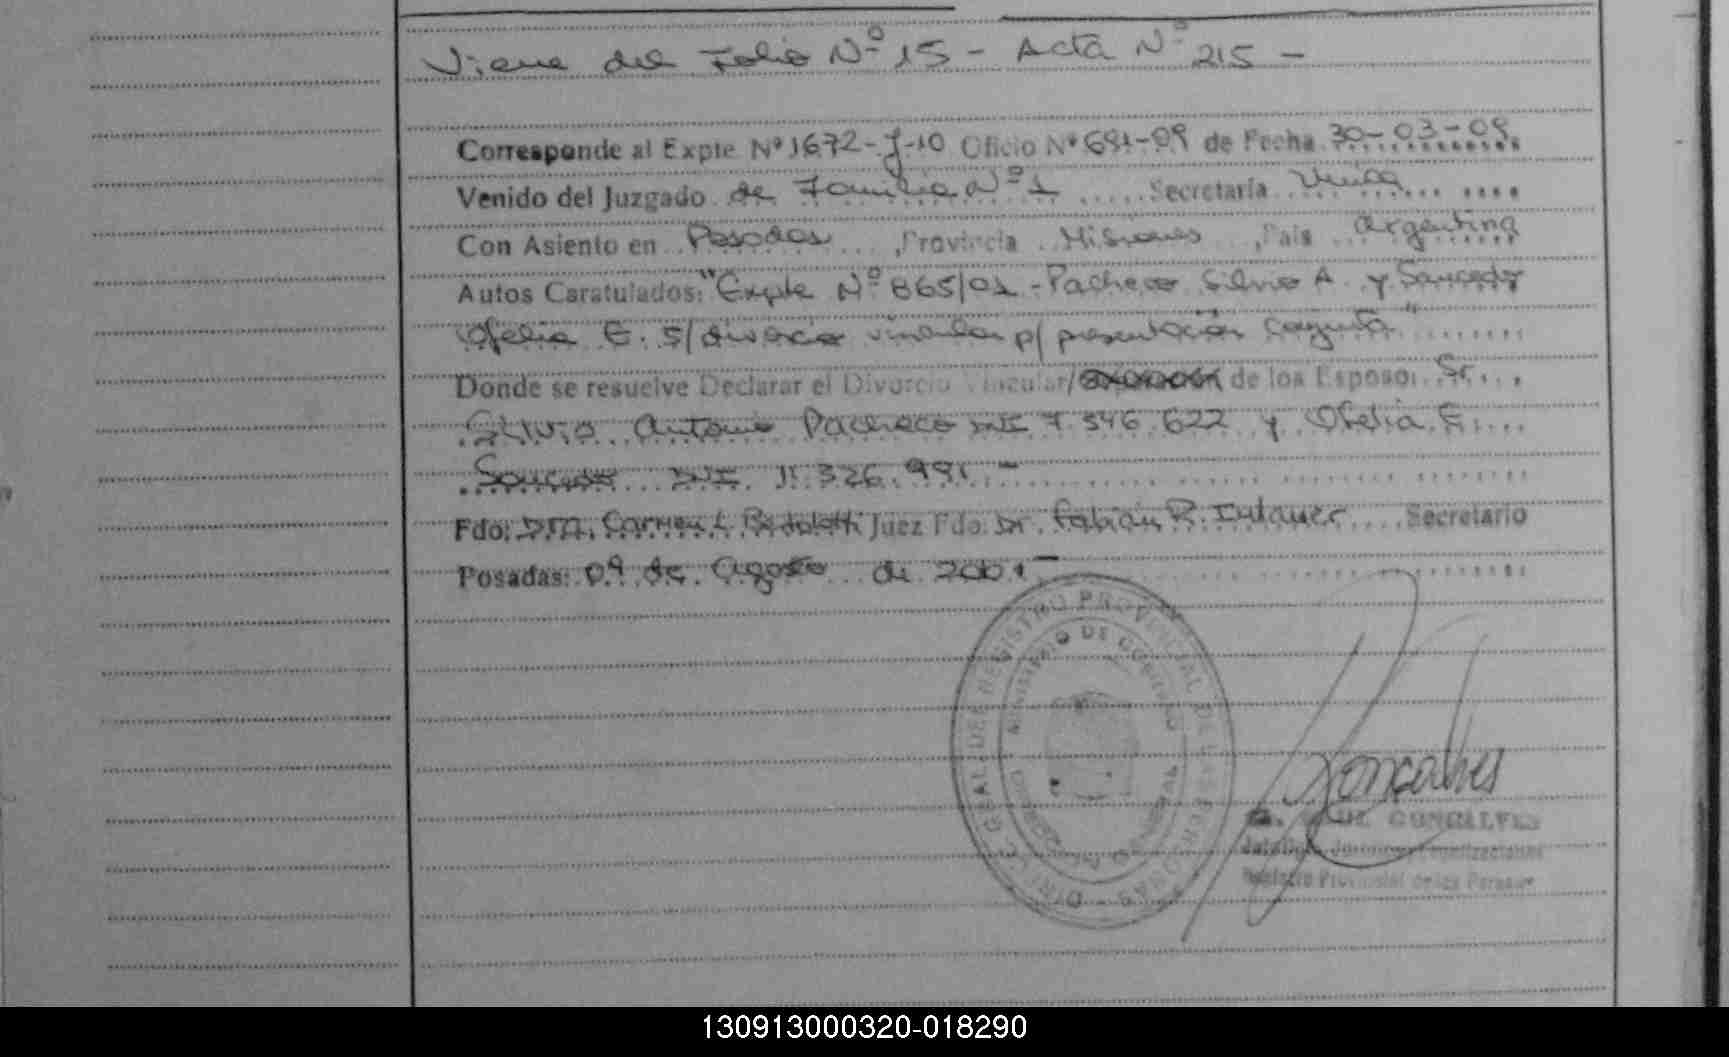 Viene del Folio Nº 15 - Acta Nº 215 -
Corresponde al Expte Nº 1672-J-10 Oficio Nº 691-09 de Fecha 30-03-09
Venido del Juzgado de Familia Nº 1 Secretaría Unica
Con Asiento en Posadas, Provincia Misiones, País Argentina
Autos Caratulados: "Expte Nº 865/01 - Pacheco Silvio A. y Saucedo
Ofelia E. S/ divorcio vincular p/ presentación conjunta"
Donde se resuelve Declarar el Divorcio Vincular/ de los Esposos Sr.
Silvio Antonio Pacheco DNI 7.546.622 y Ofelia E.
Saucedo DNI 11.326.991 -
Fdo: Dra. Carmen L. Juez Fdo. Dr. Fabián R. Secretario
Posadas: 09 de Agosto de 2001 -
DIREC. GRAL. DEL REGISTRO PROVINCIAL DE LAS PERSONAS
MINISTERIO DE GOBIERNO
Goncalves
GONCALVES
Registro Provincial de las Personas
130913000320-018290